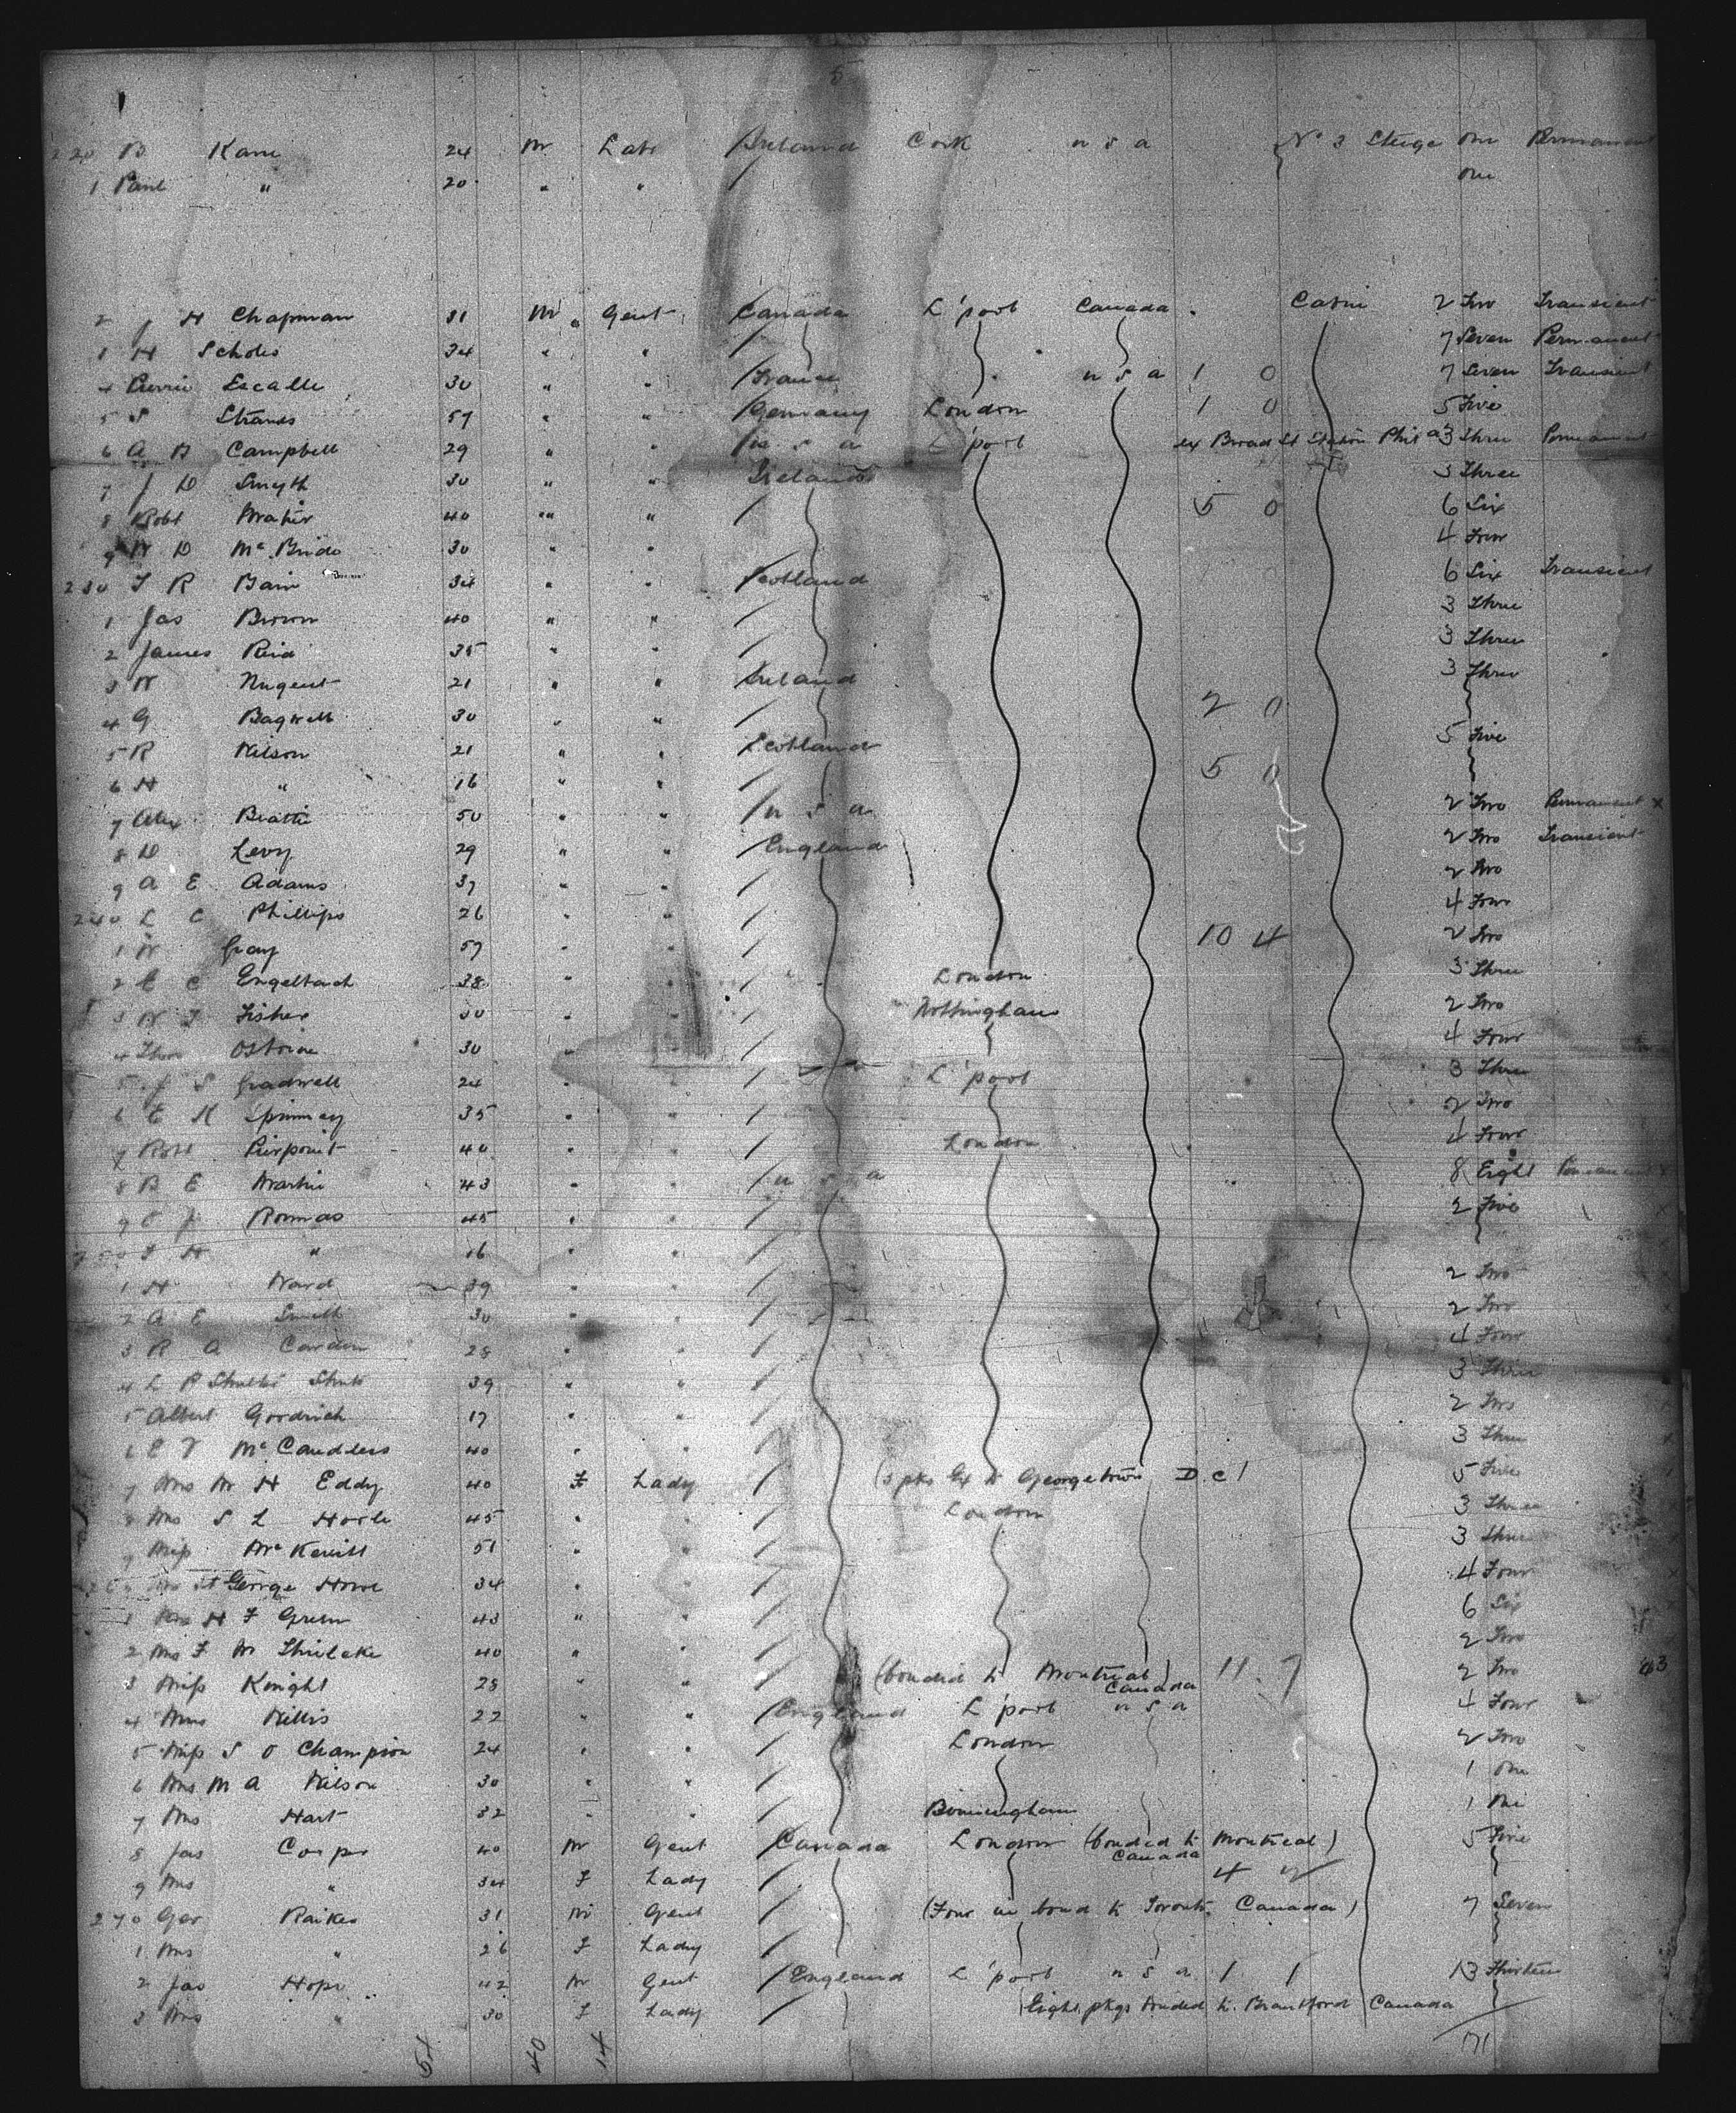 5
220 B Kane 24 M Labr Ireland Cork U S A No 3 Steige One Permanent
1 " 20 " " One
2 J H Chapman 31 M Gent Canada L'pool Canada Cabin 2 Two Transient
H Scholes 34 " " 7 Seven Permanent
4 Escalle 30 " " France U S A 1 0 7 Seven Transient
5 S Strauss 57 " " Germany London 1 0 5 Five
6 A B Campbell 29 " " U S A L'pool ex Broad St Station Phila 3 Three Permanent
7 J D Smyth 30 " " Ireland 3 Three
8 Robt 40 " " 5 0 6 Six
9 W D McBride 30 " " 4 Four
230 T R Bain 34 " " Scotland 6 Six Transient
1 Jas Brown 40 " " 3 Three
2 James Reid 35 " " 3 Three
3 W Nugent 21 " " Ireland 3 Three
4 G Bagwell 30 " " 2 0
5 R Wilson 21 " " Scotland 5 Five
6 H " 16 " " 5 0
7 Alex Beattie 50 " " U S A 2 Two Permanent x
8 D Levy 29 " " England 2 Two Transient
9 A E Adams 37 " " 2 Two
240 L C Phillips 26 " " 4 Four
1 W Gray 57 " " 10 4 2 Two
2 C C Engelbach 38 " " London 3 Three
3 W T Fisher 30 " " Nottingham 2 Two
4 Thos Osborne 30 " " 4 Four
5 J S Gradwell 24 " " L'pool 3 Three
6 E K Spinney 35 " " 2 Two
7 Robt Pierpoint 40 " " London 4 Four
8 B E Martin 43 " " U S A 8 Eight Permanent x
9 45 " " 2 Five
250 F H " 16 " "
1 H Ward 39 " " 2 Two
2 A E Smith 30 " " 2 Two
3 R A Carden 28 " " 4 Four
4 L P 39 " " 3 Three
5 Albert Goodrich 17 " " 2 Two
6 E V McCandless 40 " " 3 Three
7 Mrs M H Eddy 40 F Lady (3 pks Ex to Georgetown D.C) 5 Five
8 Mrs S L 45 " " London 3 Three
9 Miss 51 " " 3 Three
260 Mrs St George Howe 34 " " 4 Four
1 H F Green 43 " " 6 Six
2 Mrs F M 40 " " 2 Two
3 Miss Knight 28 " " (bonded to Montreal) Canada 11 7 2 Two 43
4 Mrs Willis 22 " " England L'pool U S A 4 Four
5 Miss S O Champion 24 " " London 2 Two
6 Mrs M A Wilson 30 " " 1 One
7 Mrs Hart 32 " " Birmingham 1 One
8 Jas Corps 40 M Gent Canada London (bonded to Montreal) Canada 5 Five
9 Mrs " 34 F Lady 4
270 Geo Raikes 31 M Gent (Four in bond to Toronto Canada) 7 Seven
1 Mrs " 26 F Lady
2 Jas Hope 42 M Gent England L'pool U S A 1 1 13 Thirteen
3 Mrs " 30 F Lady (Eight pkgs bonded to Brantford Canada
54 40 14 171